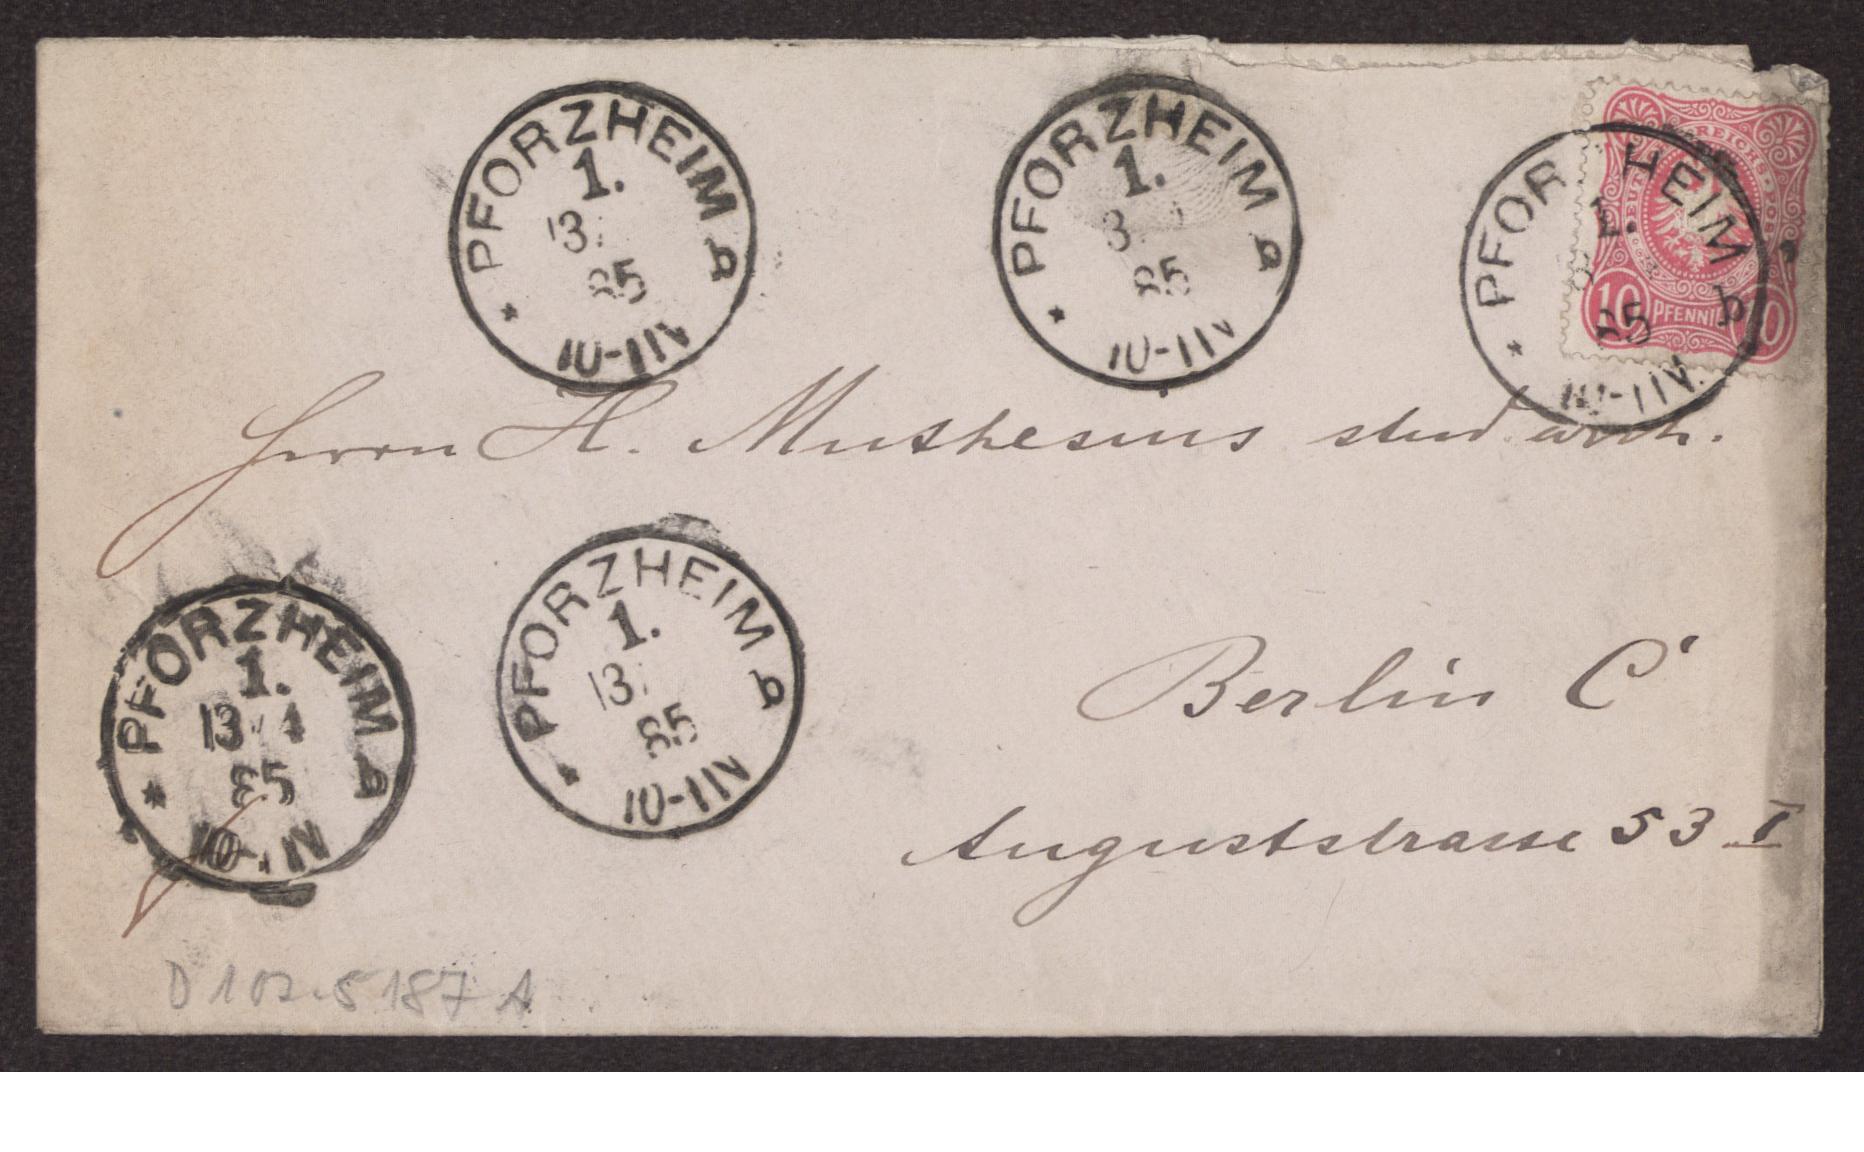 PFORZHEIM
1.
13.
85
10-11V
PFORZHEIM
1.
3
85
10-11V
DEUTSCHE REICHS-POST
10 PFENNIG 10
PFORZHEIM b
1.
85
10-11V.
Herrn H. Muthesius stud arch.
PFORZHEIM
1.
13 4
85
10-11V
PFORZHEIM
1.
13.
85
10-11V
Berlin C
Auguststrasse 53 I
D 102-5187 A